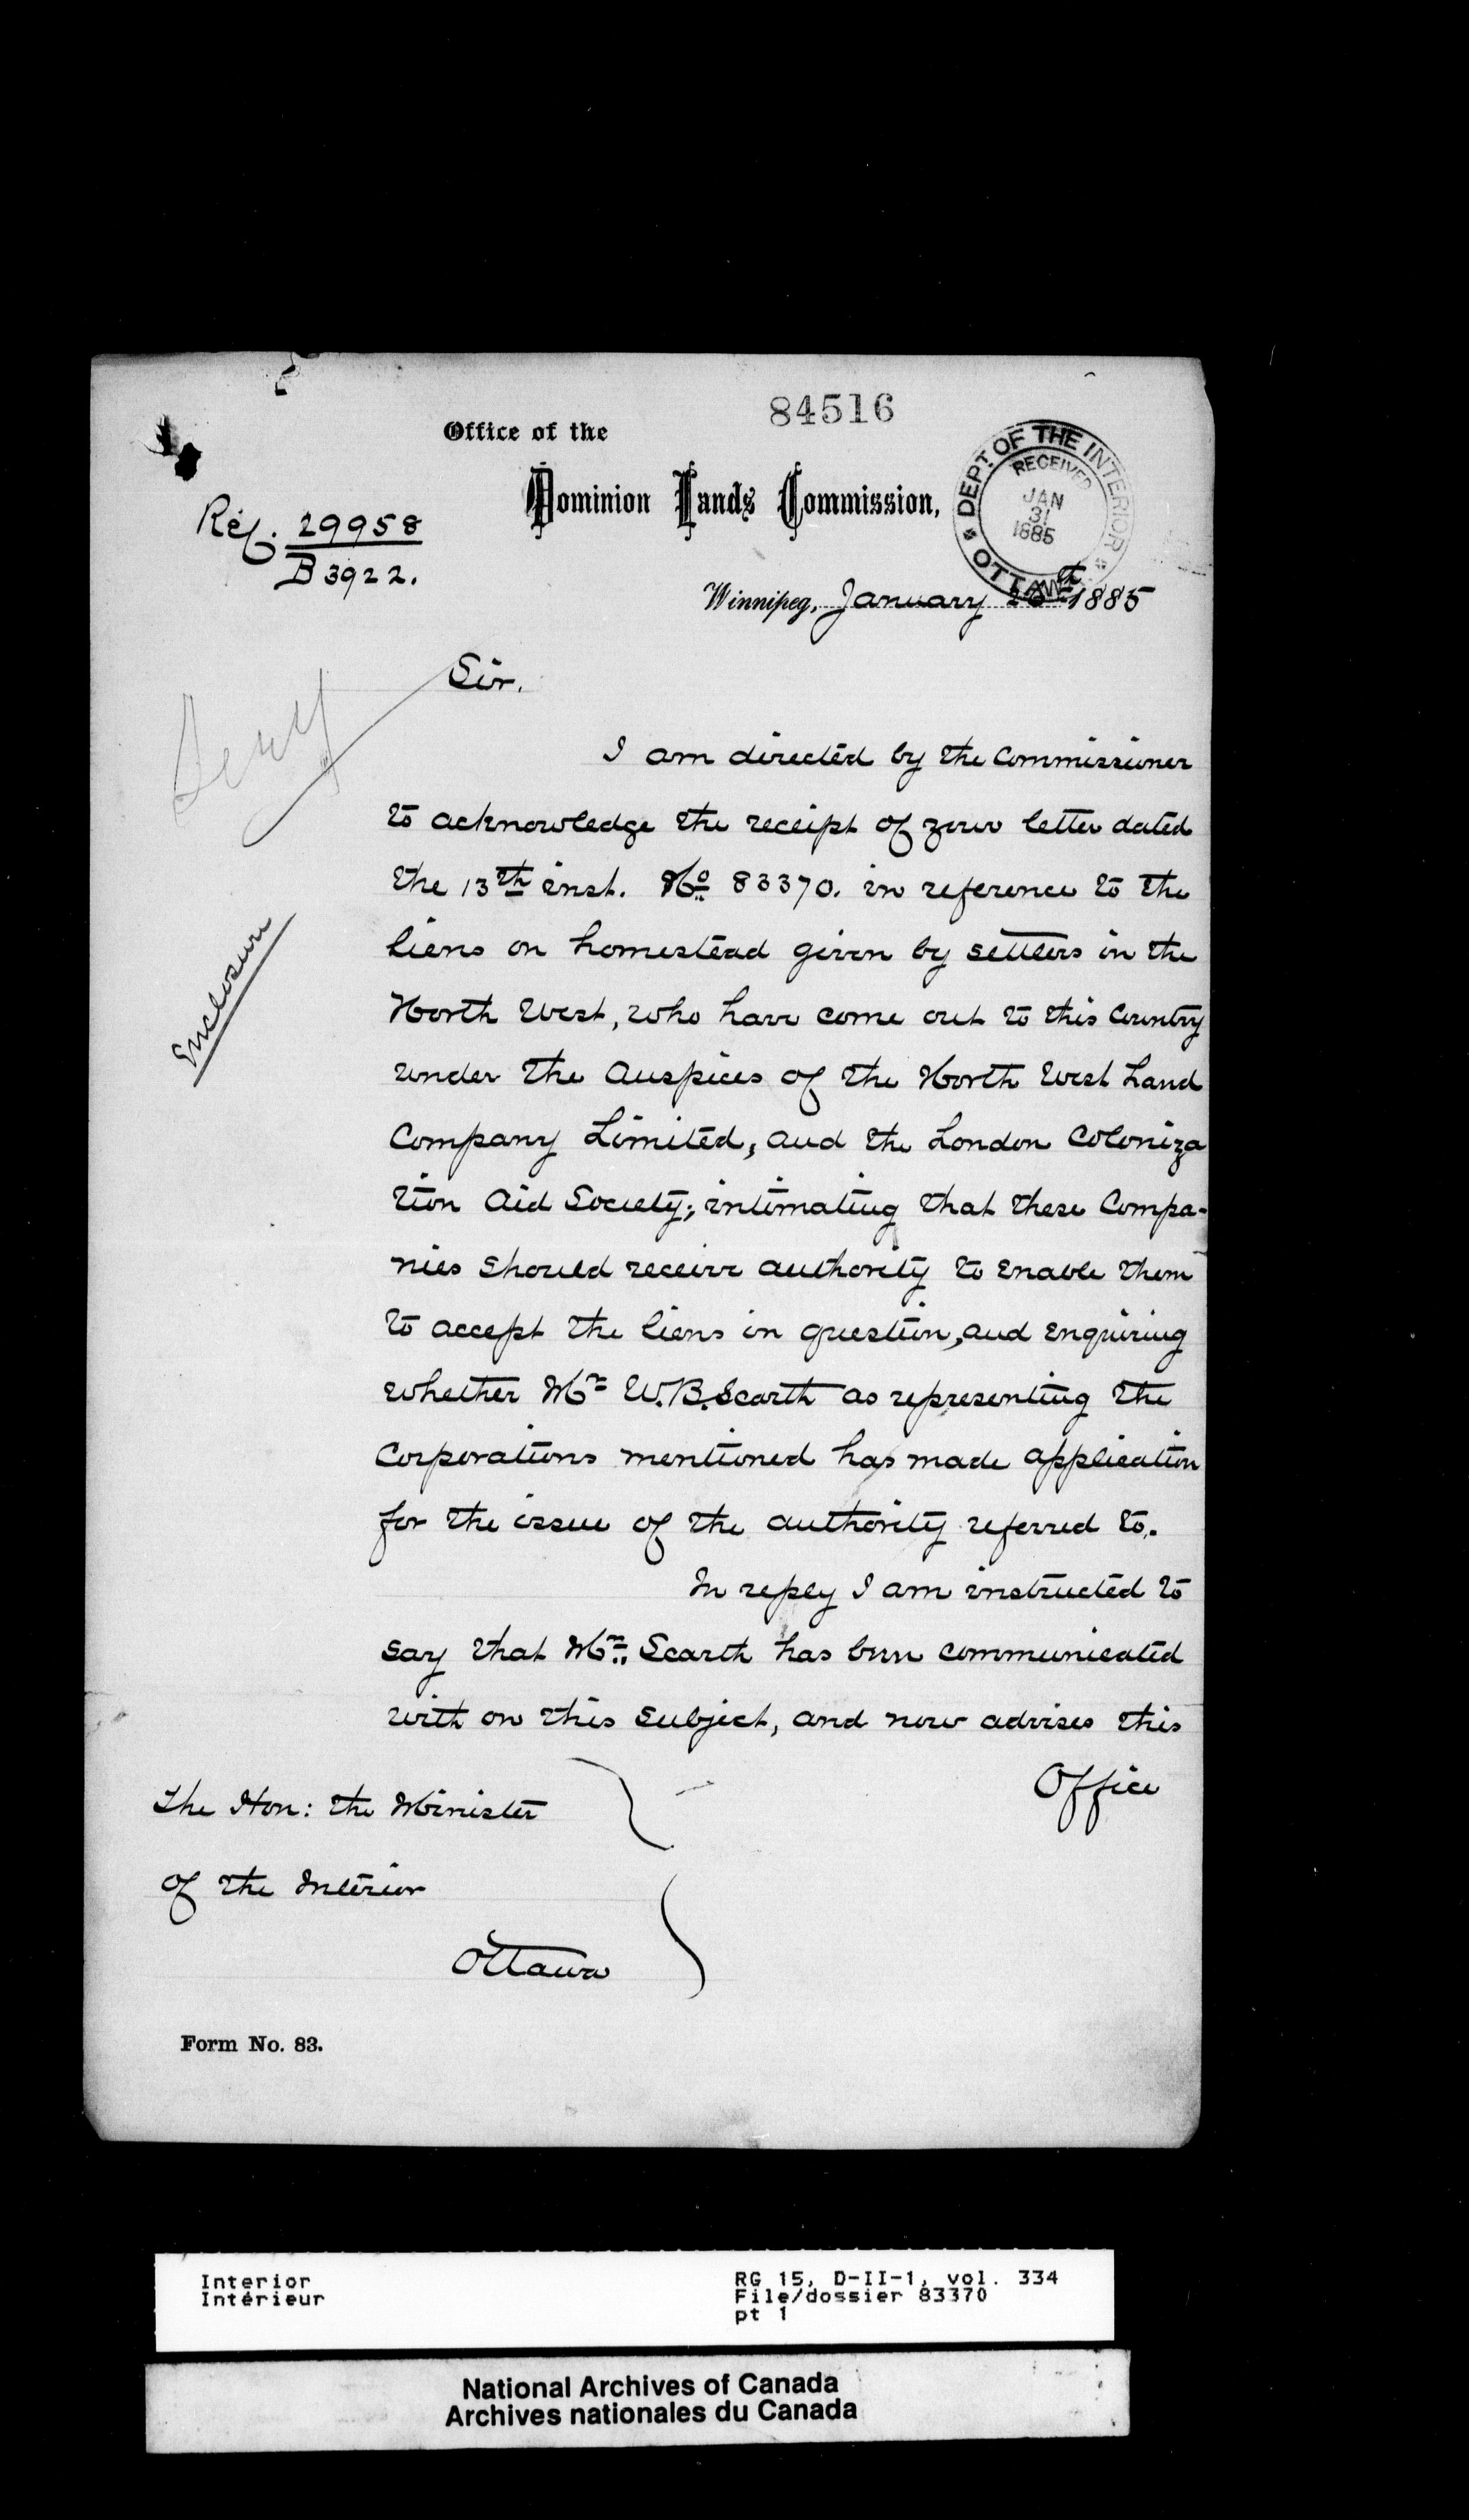 84516
Office of the
Dominion Lands Commission,
DEPT OF THE INTERIOR
RECEIVED
JAN
31
1885
OTTAWA
Ref. 29958
B 3922.
Winnipeg, January 26th 1885
Sir.
I am directed by the Commissioner
to acknowledge the receipt of your letter dated
the 13th inst. No. 83370. in reference to the
Enclosure
liens on homestead given by settlers in the
North West, who have come out to this Country
under the Auspices of the North West Land
Company Limited, and the London Coloniza
tion Aid Society; intimating that these Compa-
nies should receive authority to enable them
to accept the liens in question, and enquiring
whether Mr W.B. Scarth as representing the
Corporations mentioned has made application
for the issue of the authority referred to.
In reply I am instructed to
say that Mr. Scarth has been communicated
with on this subject, and now advises this
Office
The Hon: the Minister
of the Interior
Ottawa
Form No. 83.
Interior
Intérieur
RG 15, D-II-1, vol. 334
File/dossier 83370
pt 1
National Archives of Canada
Archives nationales du Canada